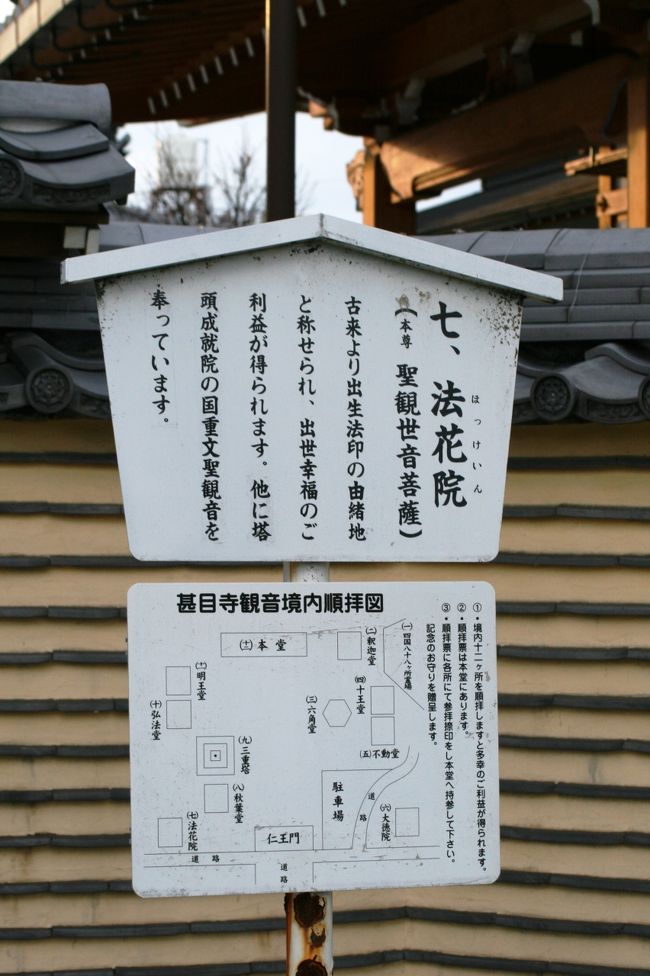 七、法花院
ほっけいん
(本尊 聖観世音菩薩)
古来より出生法印の由緒地
と称せられ、出世幸福のご
利益が得られます。他に塔
頭成就院の国重文聖観音を
奉っています。
甚目寺観音境内順拝図
①・境内十二ヶ所を順拝しますと多幸のご利益が得られます。
②・順拝票は本堂にあります。
③・順拝票に各所にて参拝捺印をし本堂へ持参して下さい。
記念のお守りを贈呈します。
(一)四国八十八ヶ所霊場
(二)釈迦堂
(十二)本堂
(十一)明王堂
(十)弘法堂
(三)六角堂
(四)十王堂
(五)不動堂
(九)三重塔
(八)秋葉堂
(七)法花院
仁王門
駐車場
道路
(六)大徳院
道路
道路